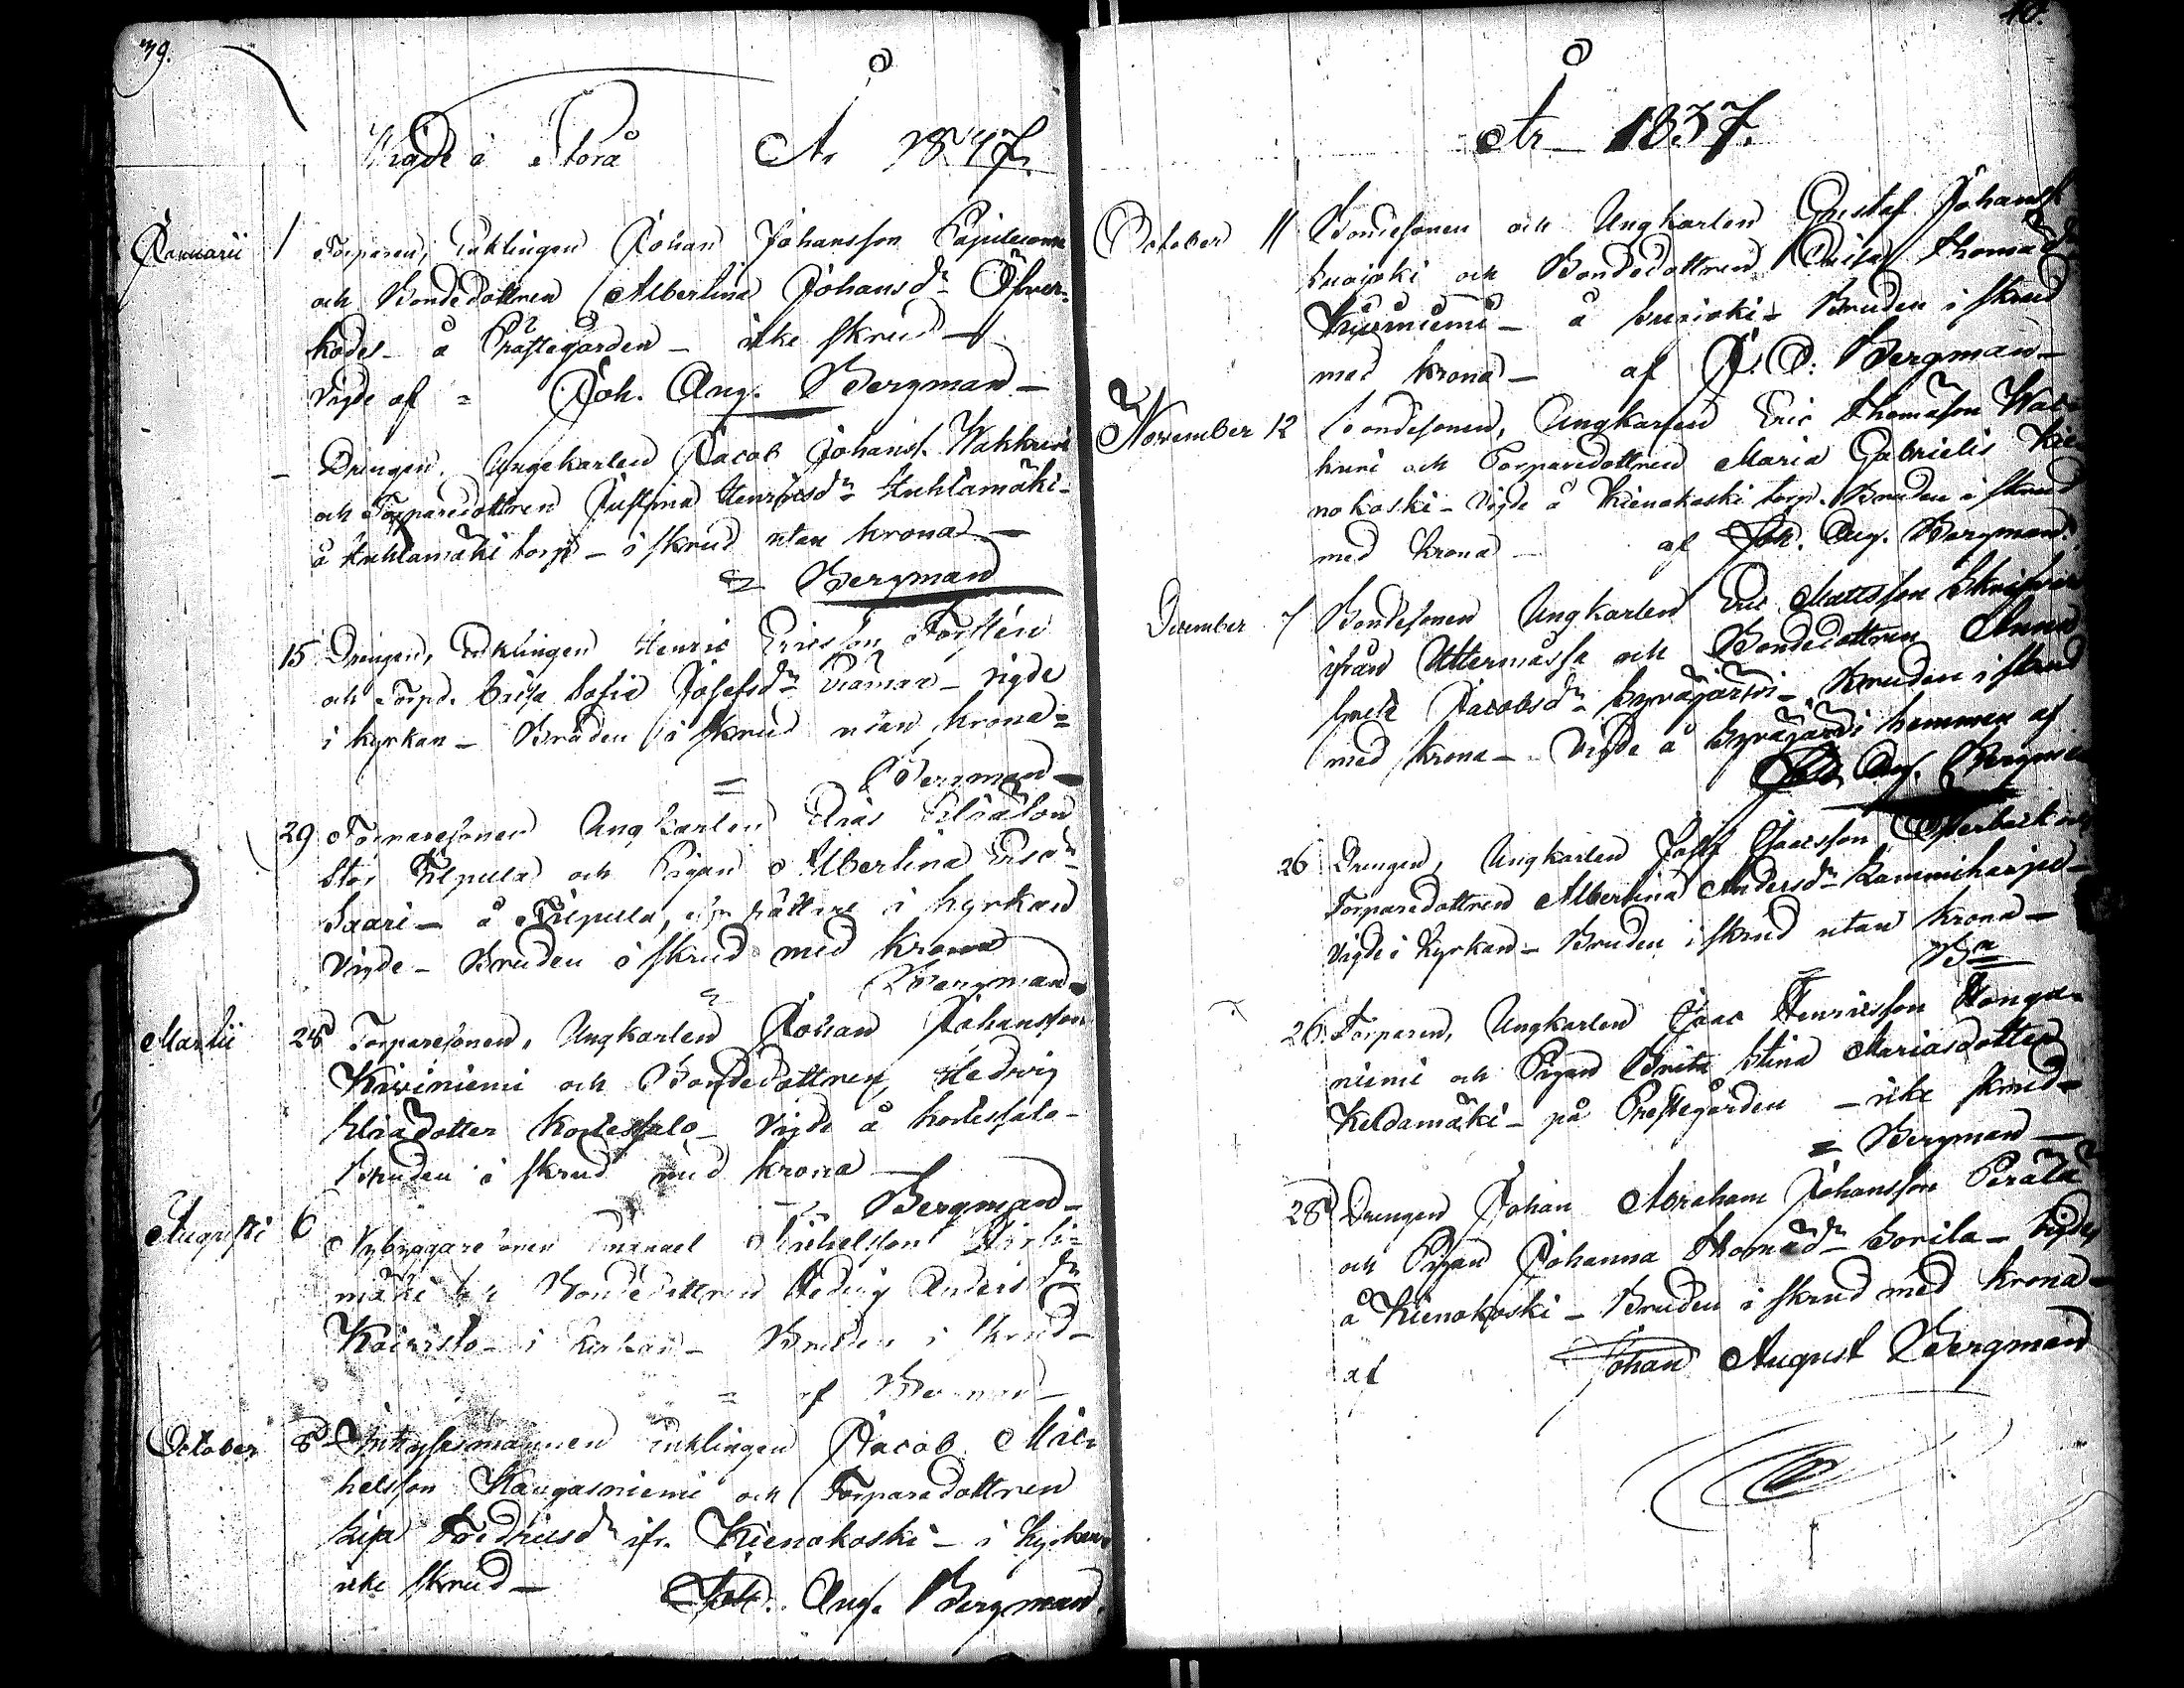 39.
Vigde i Storå År 1837.
Januarii 1 Torparen, Enklingen Johan Johansson
och Bondedottren Albertina Johansdr Öfver-
kodes å Prästegården - icke skrud -
Vigde af = Joh. Aug. Bergman -
- Drengen, Ungekarlen Jacob Johanss. Wakkuri
och Torparedottren Justina Henricsdr Huhtamäki -
å Huhtamäki torp - i skrud utan krona -
= Bergman
15 Drengen, Enklingen Henric Ericsson Forstén
och Torpd. Brita Sofia Josefsdr - vigde
i kyrkan - Bruden i skrud utan krona =
= Bergman -
29 Torparesonen Ungkarlen Elias Eliasson
Stor Filpula och Pigan Albertina Ericsdr
Saari - å Filpula, i kyrkan
Vigde - Bruden i skrud med krona
= Bergman -
Martii 28 Torparesonen, Ungkarlen Johan Johansson
Kiviniemi och Bondedottren Hedvig
Eliædotter Kodessalo - Vigde å Kodessalo -
Bruden i skrud med krona -
= Bergman -
Augusti 6 Nybyggaresonen Emanuel Michelsson
mäki och Bondedottren Hedvig Andersdr
Koivisto - i kyrkan - Bruden i skrud -
= af Bergman -
October 8 Inhysesmannen Enklingen Jacob Mic-
helsson Kangasniemi och Torparedottren
Lisa Fredricsdr ifr. Kienokoski - i kyrkan
icke skrud - Joh. Aug. Bergman.
40.
År 1837.
October 11 Bondesonen och Ungkarlen Gustaf Johanss.
Luojoki och Bondedottren Caisa Thomædr
Kiviniemi - å - Bruden i skrud
med krona - af J. A. Bergman -
November 12 Bondesonen, Ungkarlen Eric Thomasson Wak-
kuri och Torparedottren Maria Gabrielis Kie-
nokoski - Vigde å Kienokoski torp. Bruden i skrud
med krona - af Joh. Aug. Bergman.
December 7 Bondesonen Ungkarlen Eric Mattsson
ifrån Ättermossa och Bondedottren Anna
Greta Jacobsdr Syväjärvi - Bruden i skrud
med krona - Vigde å Syväjärvi hemman af
Joh. Aug. Bergman
26 Drengen, Ungkarlen Josef Isacsson
Torparedottren Albertina Andersdr Kammiharju -
Vigde i Kyrkan - Bruden i skrud utan krona -
= Bn
26. Torparen, Ungkarlen Isac Henricsson Honga-
niemi och Pigan Brita Stina Mariasdotter
Keldamäki - på Prestegården - icke skrud -
= Bergman -
28 Drengen Johan Abraham Johansson Perälä
och Pigan Johanna Thomædr Sorila - vigde
å Kienokoski - Bruden i skrud med krona -
af Johan August Bergman